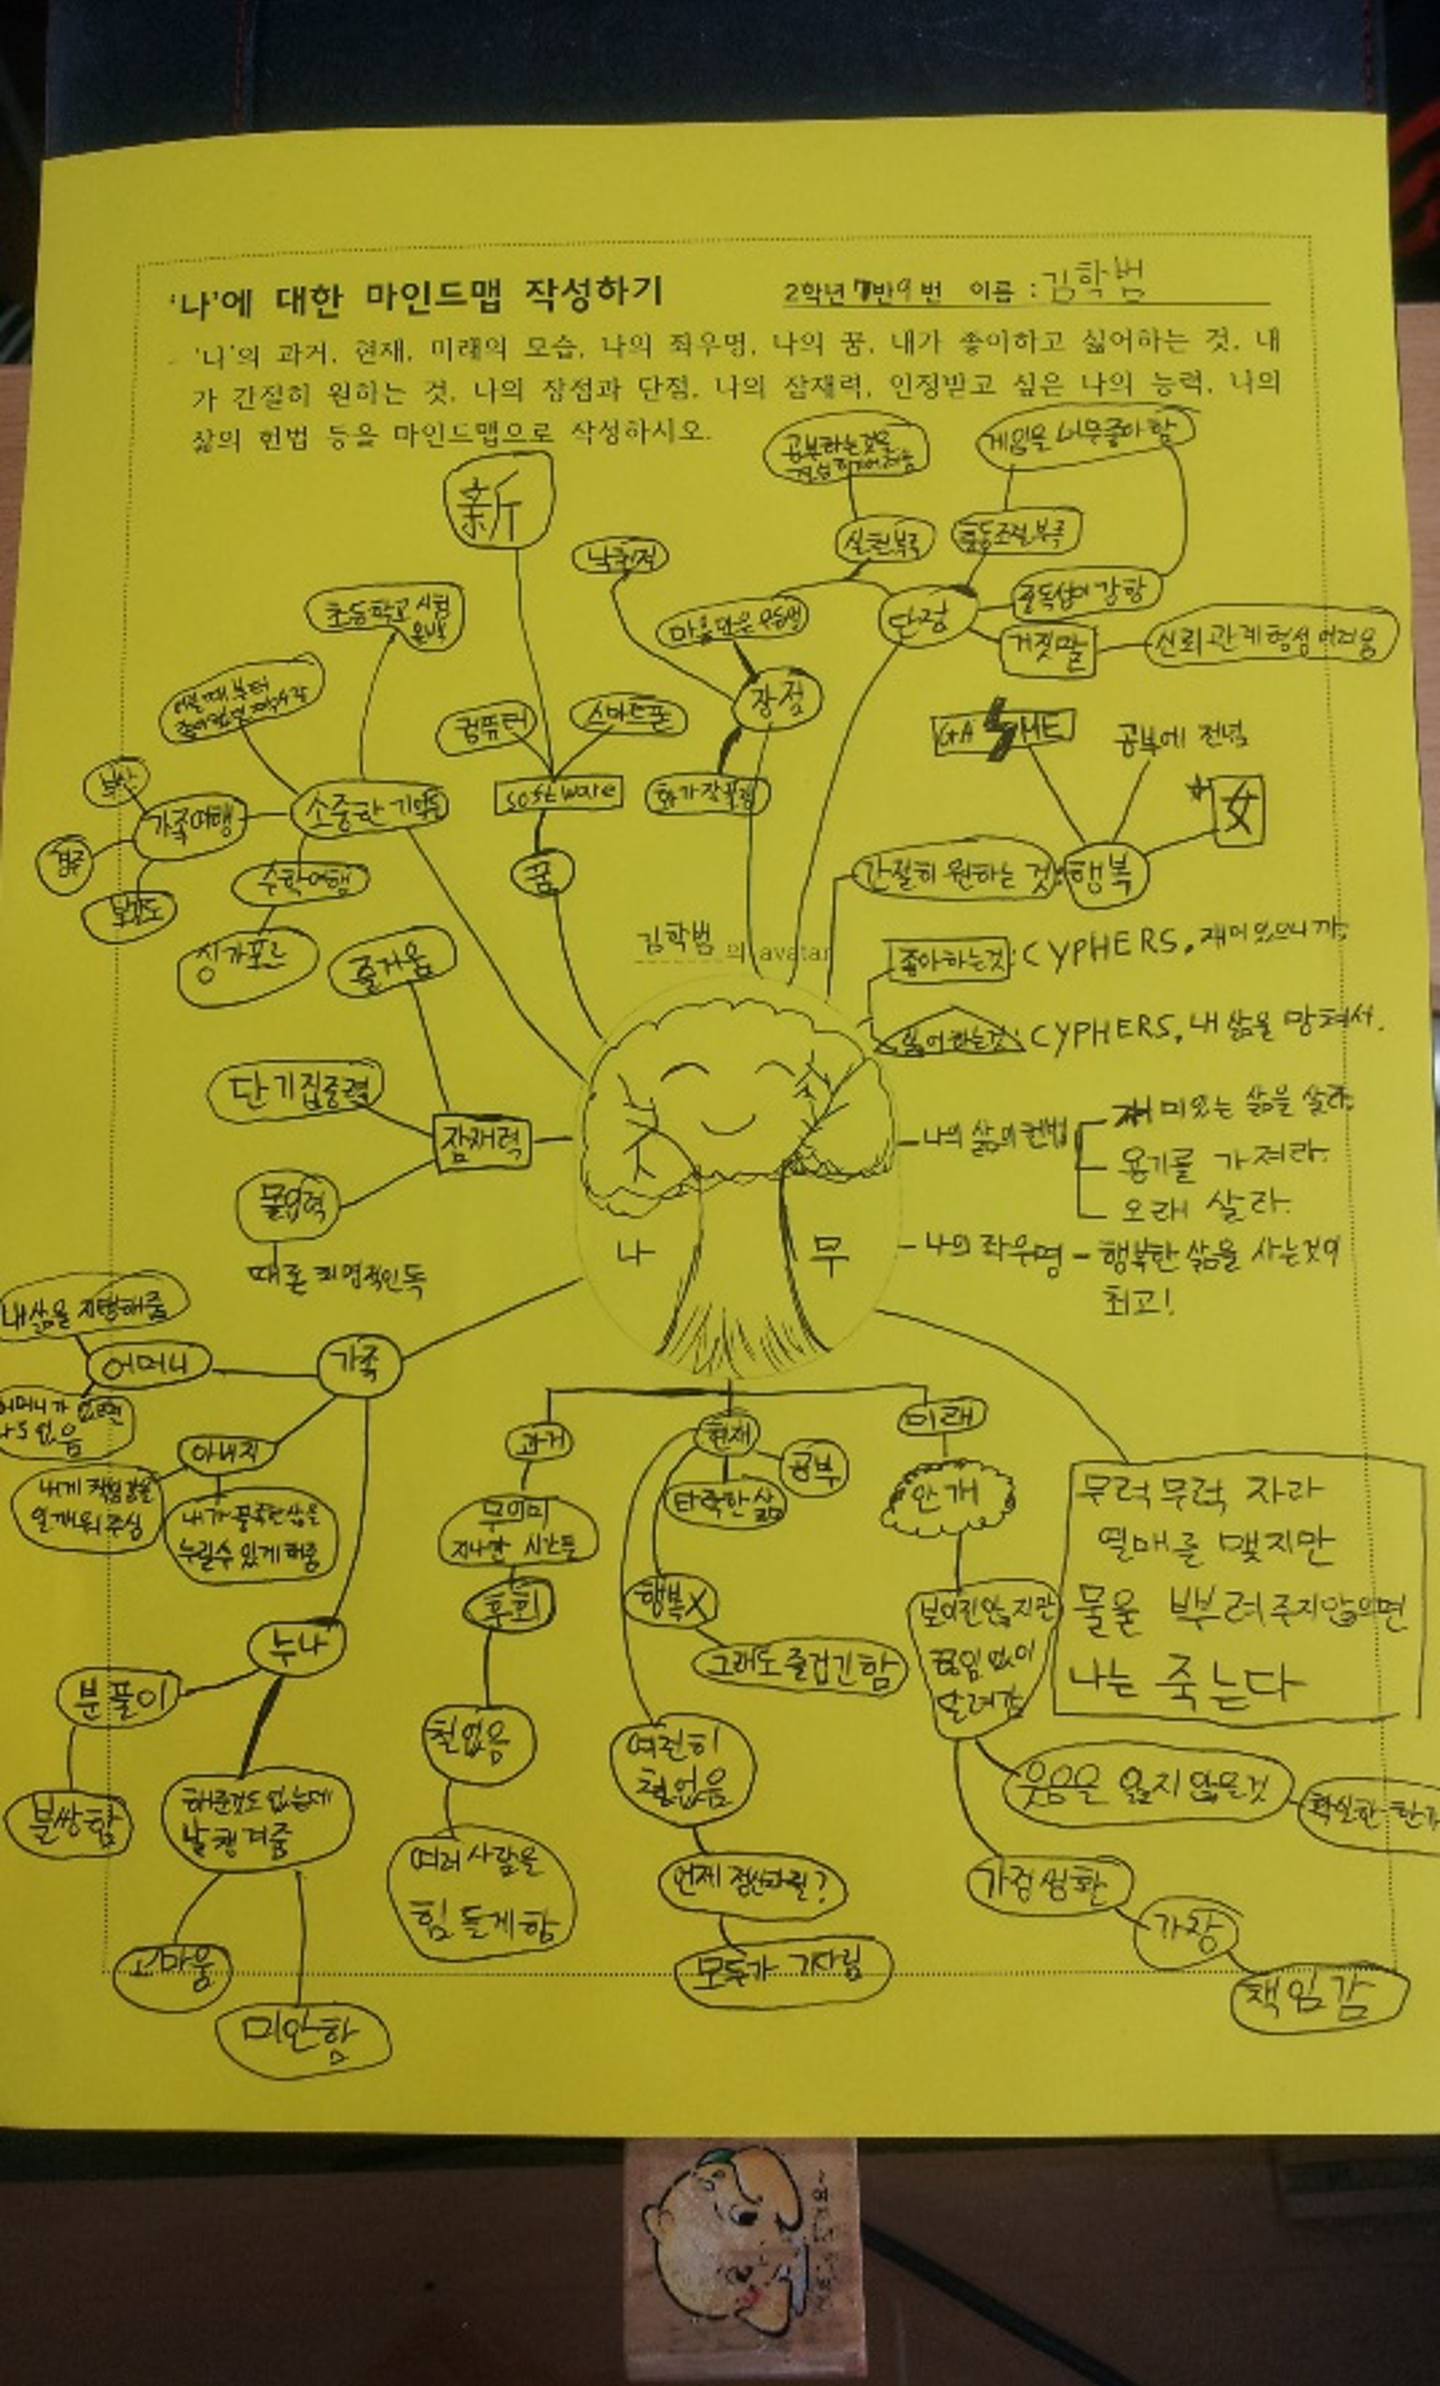 '나'에 대한 마인드맵 작성하기
2학년 7반 9번 이름 : 김학범
'나'의 과거, 현재, 미래의 모습, 나의 좌우명, 나의 꿈, 내가 좋아하고 싫어하는 것, 내
가 간절히 원하는 것, 나의 장점과 단점, 나의 잠재력, 인정받고 싶은 나의 능력, 나의
삶의 헌법 등을 마인드맵으로 작성하시오.
新
공부하는것을
게임을 너무좋아함
낙천적
실천부족
충동조절부족
초등학교 시험
올백
마음만은 우등생
단점
중독성이 강함
거짓말
신뢰관계형성 어려움
장점
컴퓨터
스마트폰
software
꿈
GAME
공부에 전념
女
부산
가족여행
소중한 기억들
경주
수학여행
싱가포르
간절히 원하는 것
행복
김학범 의 avatar
좋아하는것 : CYPHERS, 재미있으니까
싫어하는것 : CYPHERS, 내 삶을 망쳐서.
즐거움
단기집중력
잠재력
몰입력
때론 치명적인독
나의 삶의헌법
재미있는 삶을 살라.
용기를 가져라.
오래 살라.
나 무
나의 좌우명 - 행복한 삶을 사는것이
최고!
내삶을 지탱해줌
어머니
가족
어머니가 없으면
나도 없음
아버지
내게 책임감을
일깨워주심
내가 풍족한삶을
누릴수 있게 해줌
누나
분풀이
불쌍함
해준것도 없는데
날 챙겨줌
고마움
미안함
과거
무의미
지나간 시간들
후회
철없음
여러 사람을
힘들게 함
현재
공부
타락한 삶
행복X
그래도 즐겁긴함
여전히
철없음
언제 정신차릴?
모두가 기다림
미래
안개
보이진않지만
끊임없이
달려감
웃음은 잃지 않을것
가정생활
가장
책임감
무럭무럭 자라
열매를 맺지만
물을 뿌려주지않으면
나는 죽는다